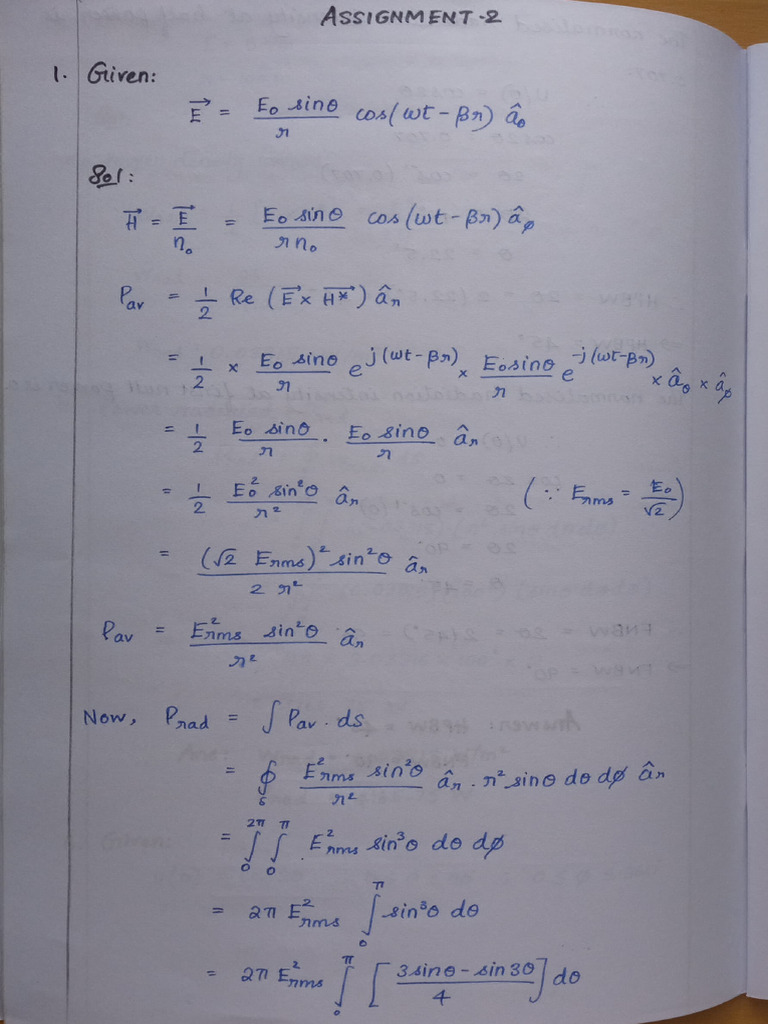 ASSIGNMENT-2
1. Given:
E⃗ = E₀ sinθ / r cos(ωt - βr) â_θ
Sol:
H⃗ = E⃗ / η₀ = E₀ sinθ / r η₀ cos(ωt - βr) â_ϕ
Pav = 1/2 Re (E⃗ × H⃗*) â_r
= 1/2 × E₀ sinθ / r e^{j(ωt-βr)} × E₀ sinθ / r e^{-j(ωt-βr)} × â_θ × â_ϕ
= 1/2 E₀ sinθ / r . E₀ sinθ / r â_r
= 1/2 E₀² sin²θ / r² â_r (∵ Erms = E₀ / √2)
= (√2 Erms)² sin²θ / 2 r² â_r
Pav = E²rms sin²θ / r² â_r
Now, Prad = ∫ Pav . ds
= ∮_S E²rms sin²θ / r² â_r . r² sinθ dθ dϕ â_r
= ∫₀^{2π} ∫₀^{π} E²rms sin³θ dθ dϕ
= 2π E²rms ∫₀^{π} sin³θ dθ
= 2π E²rms ∫₀^{π} [3sinθ - sin3θ / 4] dθ